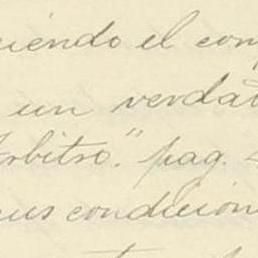 uiendo el com
un verda
Arbitro." pag.
sus condicion